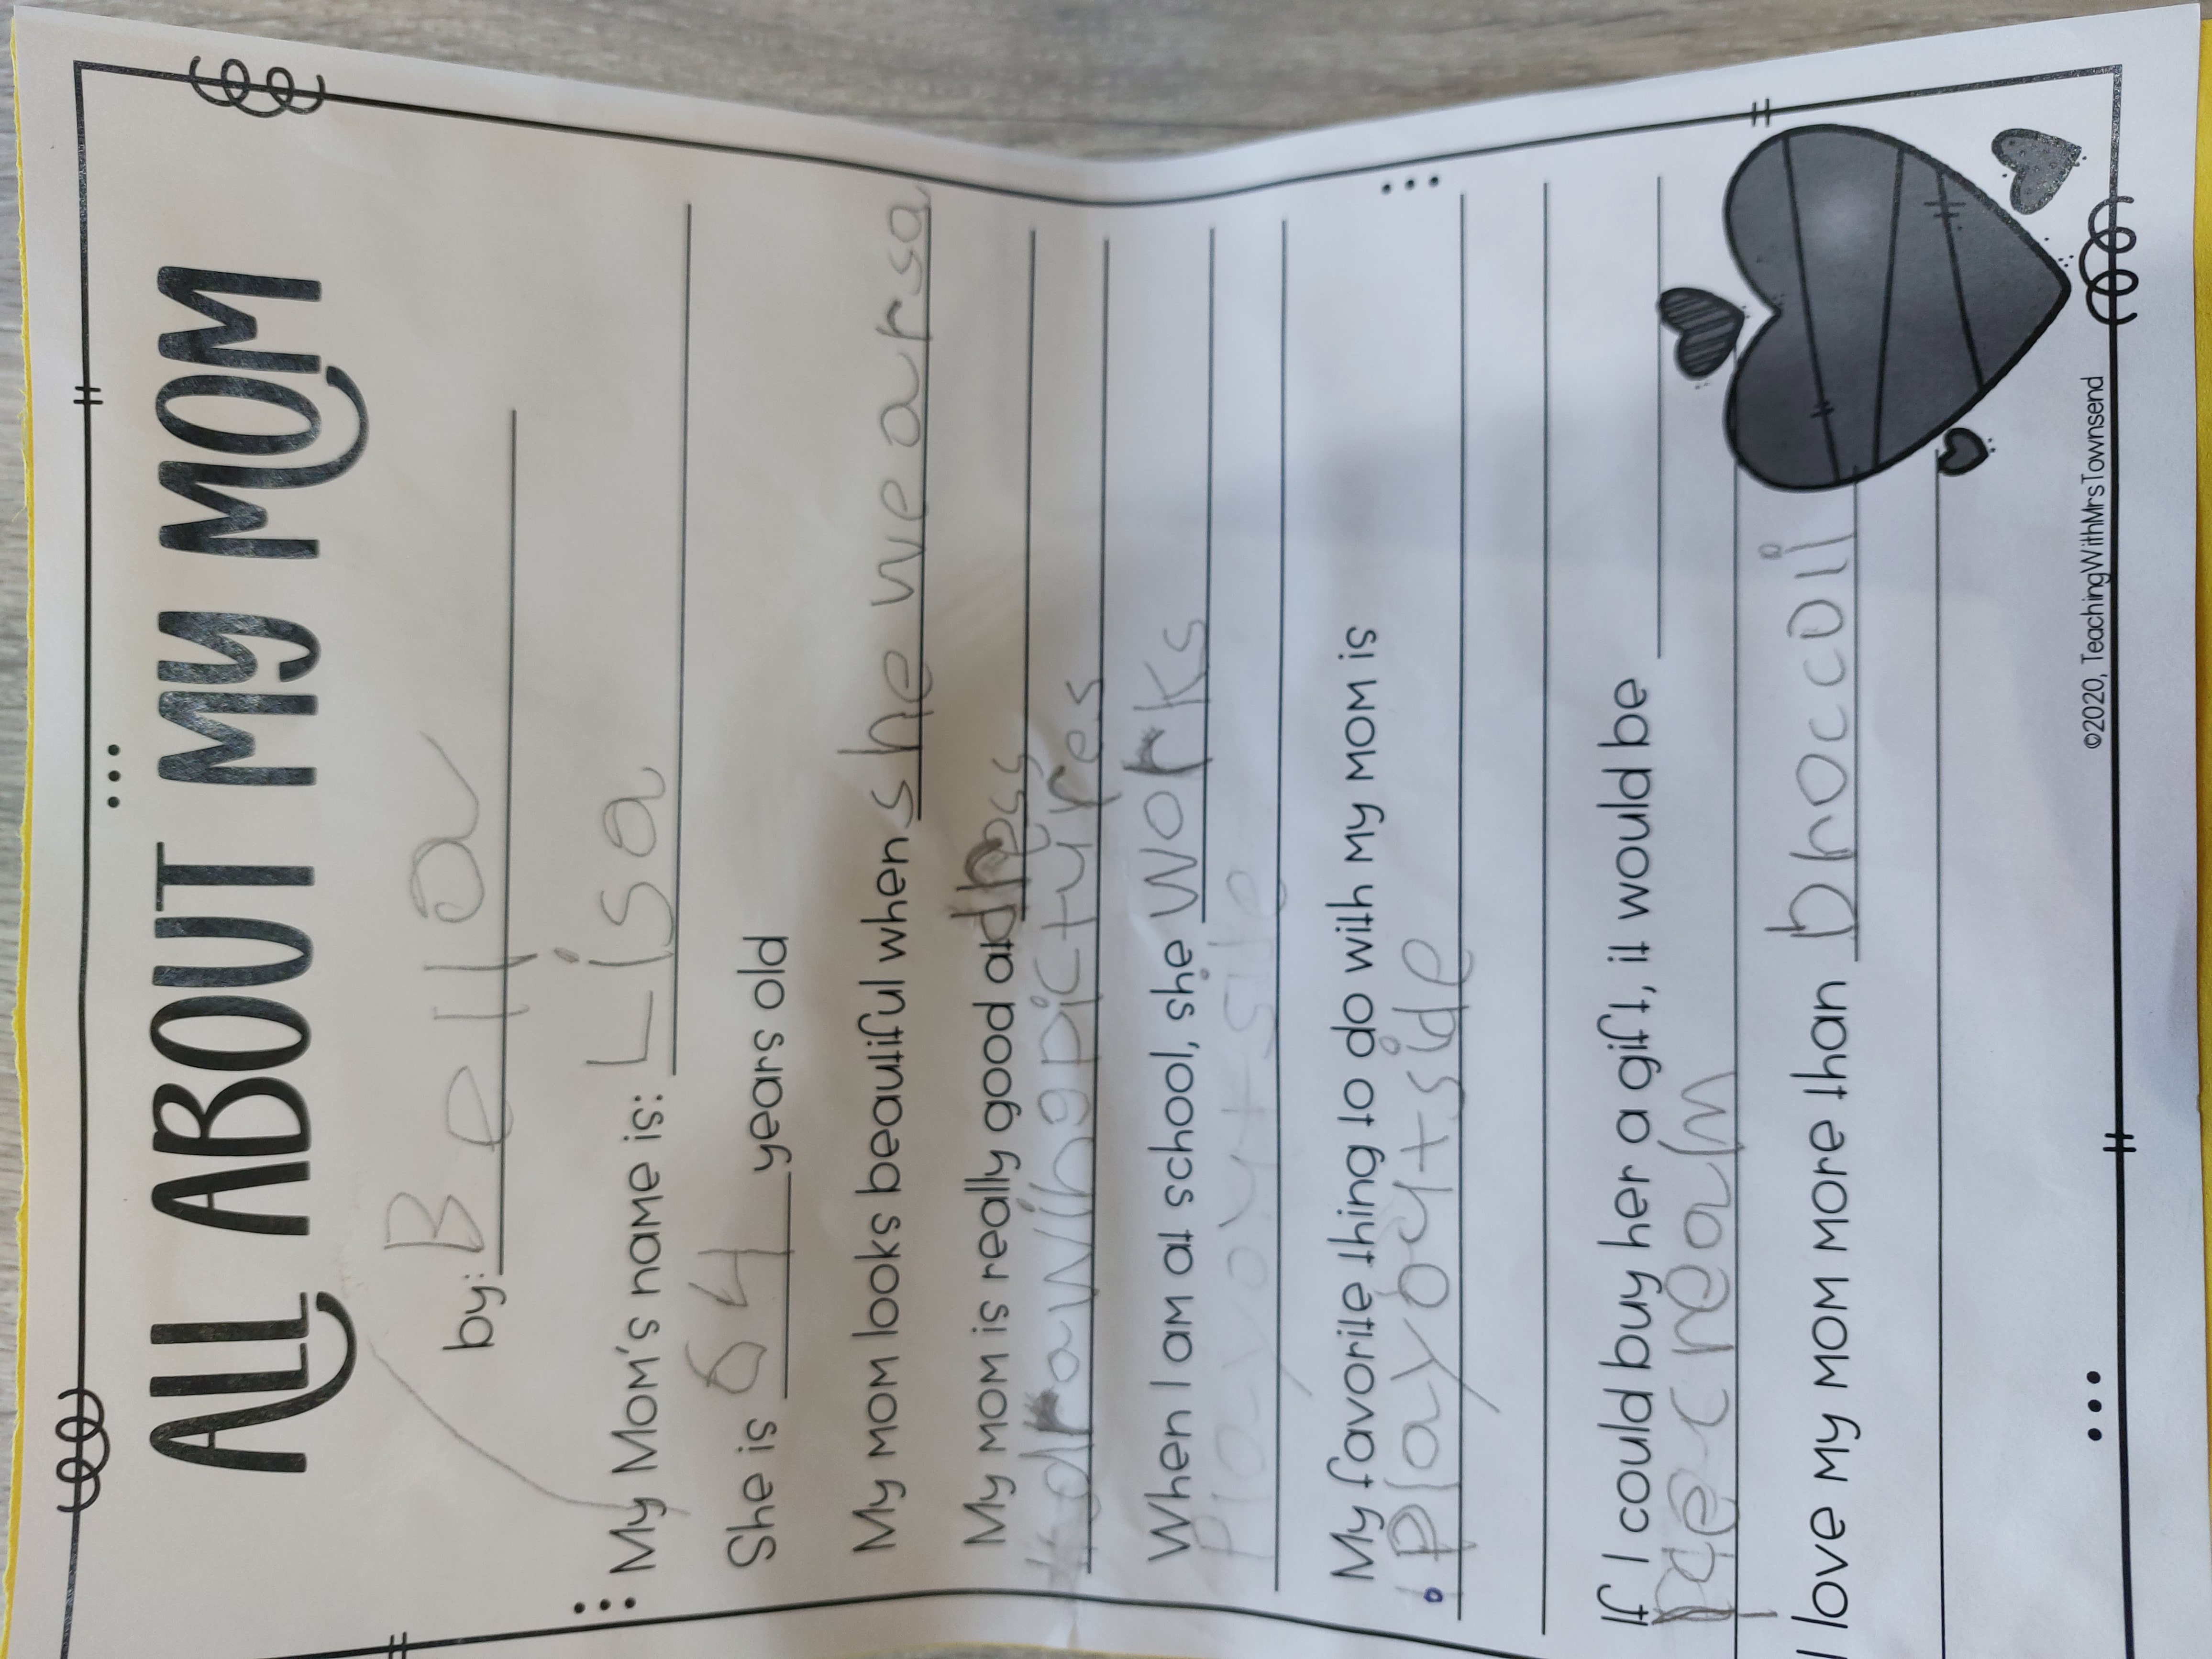 ALL ABOUT MY MOM
by: Bella
My Mom's name is: Lisa
She is 64 years old
My mom looks beautiful when she wears a
My mom is really good at dress
drawing pictures
When I am at school, she works
play out side
My favorite thing to do with my mom is
play out side
If I could buy her a gift, it would be
a new
I love my mom more than bhoccoli
©2020, TeachingWithMrsTownsend